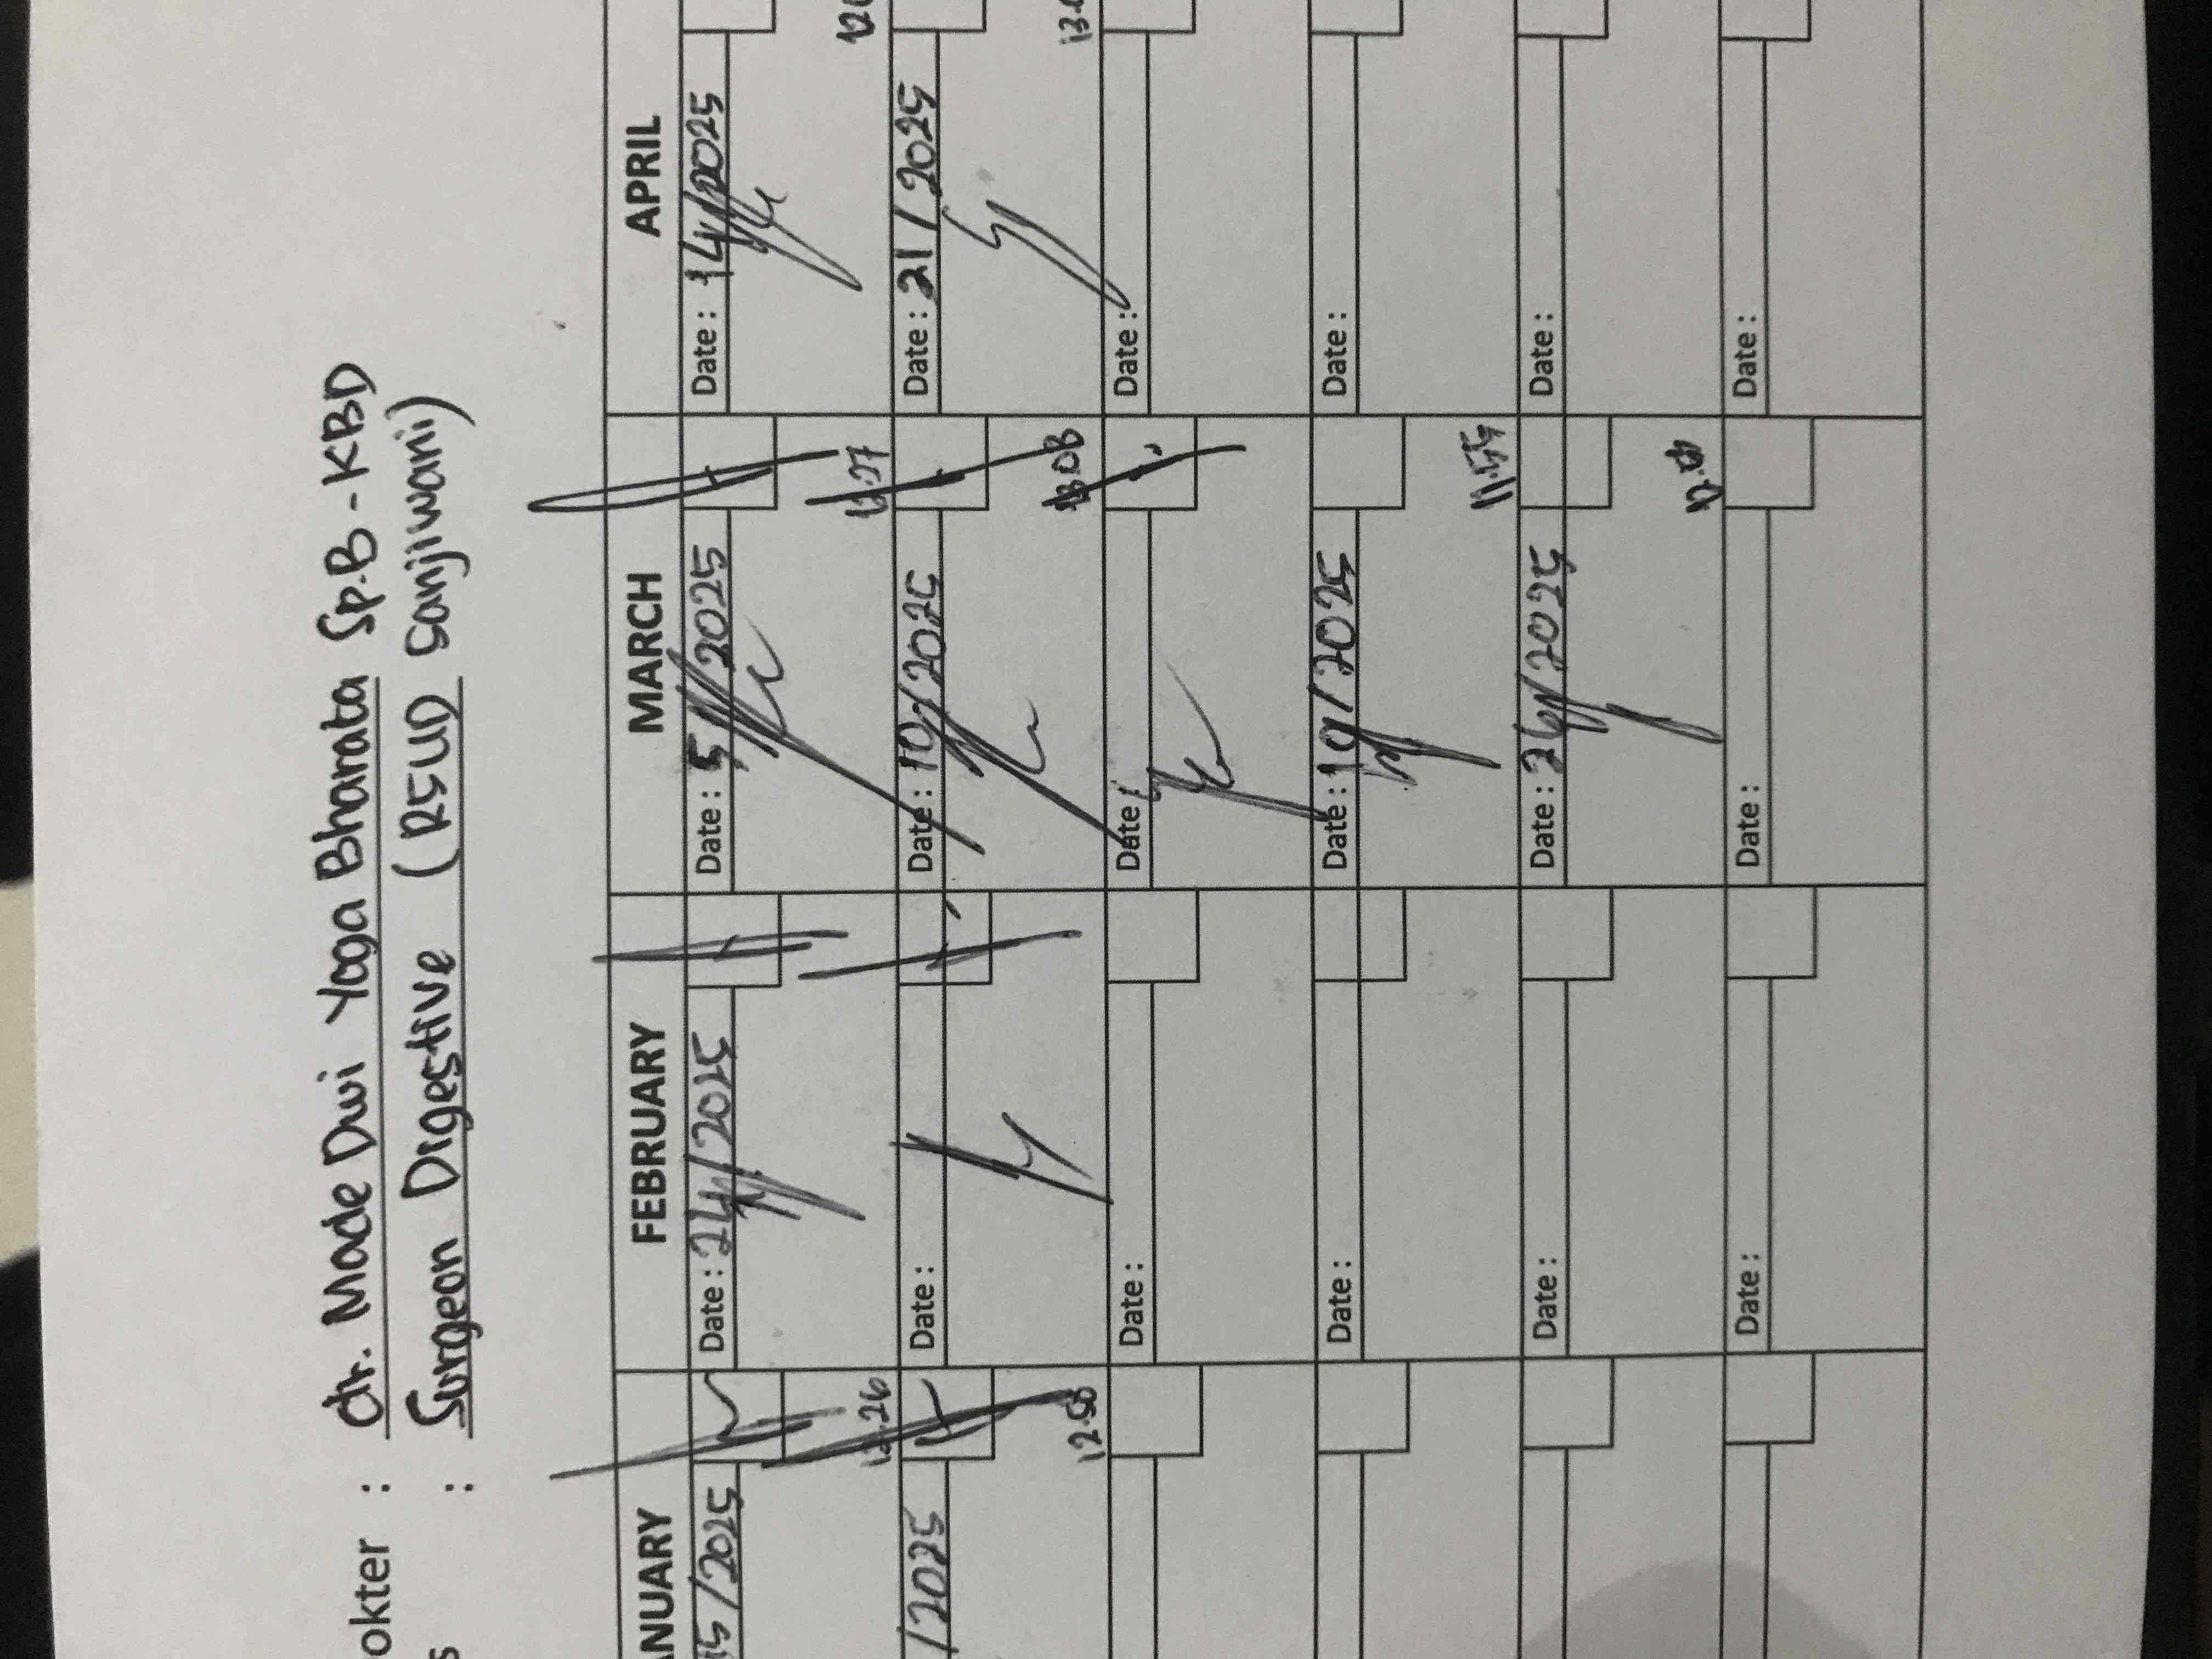 okter : dr. Made Dwi Yoga Bharata Sp.B - KBD
s : Surgeon Digestive (RSUD Sanjiwani)
ANUARY FEBRUARY MARCH APRIL
15/2025 Date : 24/2025 Date : 5/2025 Date : 14/2025
12.26 12.07
/2025 Date : Date : 10/2025 Date : 21/2025
12.50 13.08
Date : Date : Date :
Date : Date : 19/2025 Date :
11.54
Date : Date : 26/2025 Date :
Date : Date : Date :